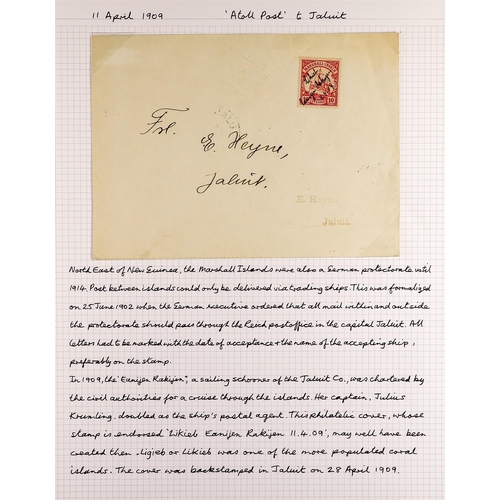 11 April 1909 'Atoll Post' to Jaluit
MARSHALL INSELN
10 10
Frl. E. Heyne,
Jaluit.
E. Heyne
Jaluit
North East of New Guinea, the Marshall Islands were also a German protectorate until
1914. Post between islands could only be delivered via trading ships. This was formalized
on 25 June 1902 when the German executive ordered that all mail within and outside
the protectorate should pass through the Reich post office in the capital Jaluit. All
letters had to be marked with the date of acceptance & the name of the accepting ship,
preferably on the stamp.
In 1909, the "Eanijen Rakijen", a sailing schooner of the Jaluit Co., was chartered by
the civil authorities for a cruise through the islands. Her captain, Julius
Krumling, doubled as the ship's postal agent. This philatelic cover, whose
stamp is endorsed 'Likieb Eanijen Rakijen 11.4.09', may well have been
created then. Ligieb or Likieb was one of the more populated coral
islands. The cover was backstamped in Jaluit on 28 April 1909.